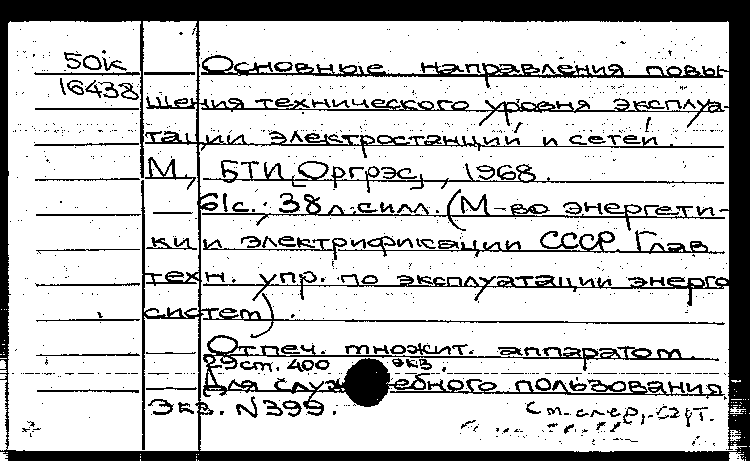 50к Основные направления повы-
16438 шения технического уровня эксплуа-
тации электростанций и сетей.
М., БТИ [Оргрэс], 1968.
— 61с.; 38 л.силл. (М-во энергети-
ки и электрификации СССР. Глав.
техн. упр. по эксплуатации энерго
систем).
Отпеч. множит. аппаратом.
29ст. 400 экз.
Для служебного пользования
Экз. N399.